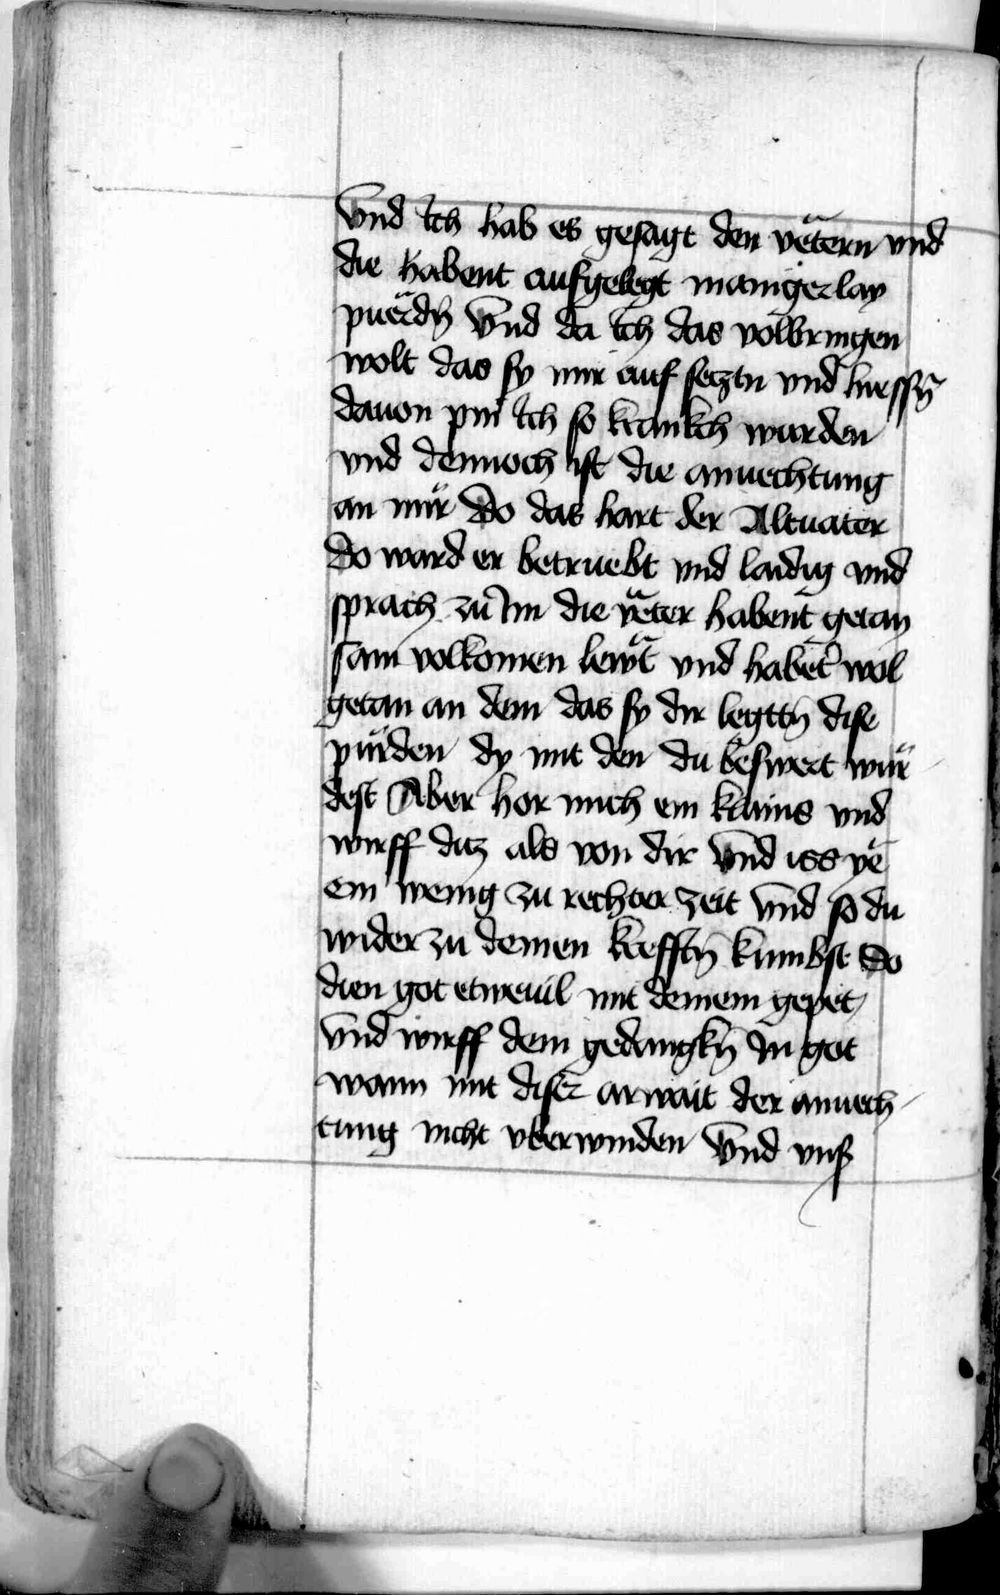 Vnd Ich hab es gesagt den vëtern vnd
die habent aufgelegt manigerlay
puërdn̄ Vnd da Ich das volbringen
wolt das sy mir auf seczt̄n vnd hiessn̄
dauon pin Ich so krankch wurden
vnd dennoch ist die anuechtung
an mir Do das hart der Altuater
Do ward er betruebt vnd laidig vnd
sprach zu Im die vëter habent getan
sam volkomen lewt̋ vnd habēt wol
getan an dem das sy dir legttn̄ dise
pürden dy mit den du beswert wür
dest Aber hor mich ein klains vnd
wirff dicz als von dir Vnd iss ye
ein wenig zu rechter zeit Vnd so du
wider zu deinen krefftn̄ kumbst Do
dien got etweuil mit deinem gepet
Vnd wirff dein gedangkn̄ In got
wann mit diser arwait der anuech
tung nicht vberwinden Vnd vnſ